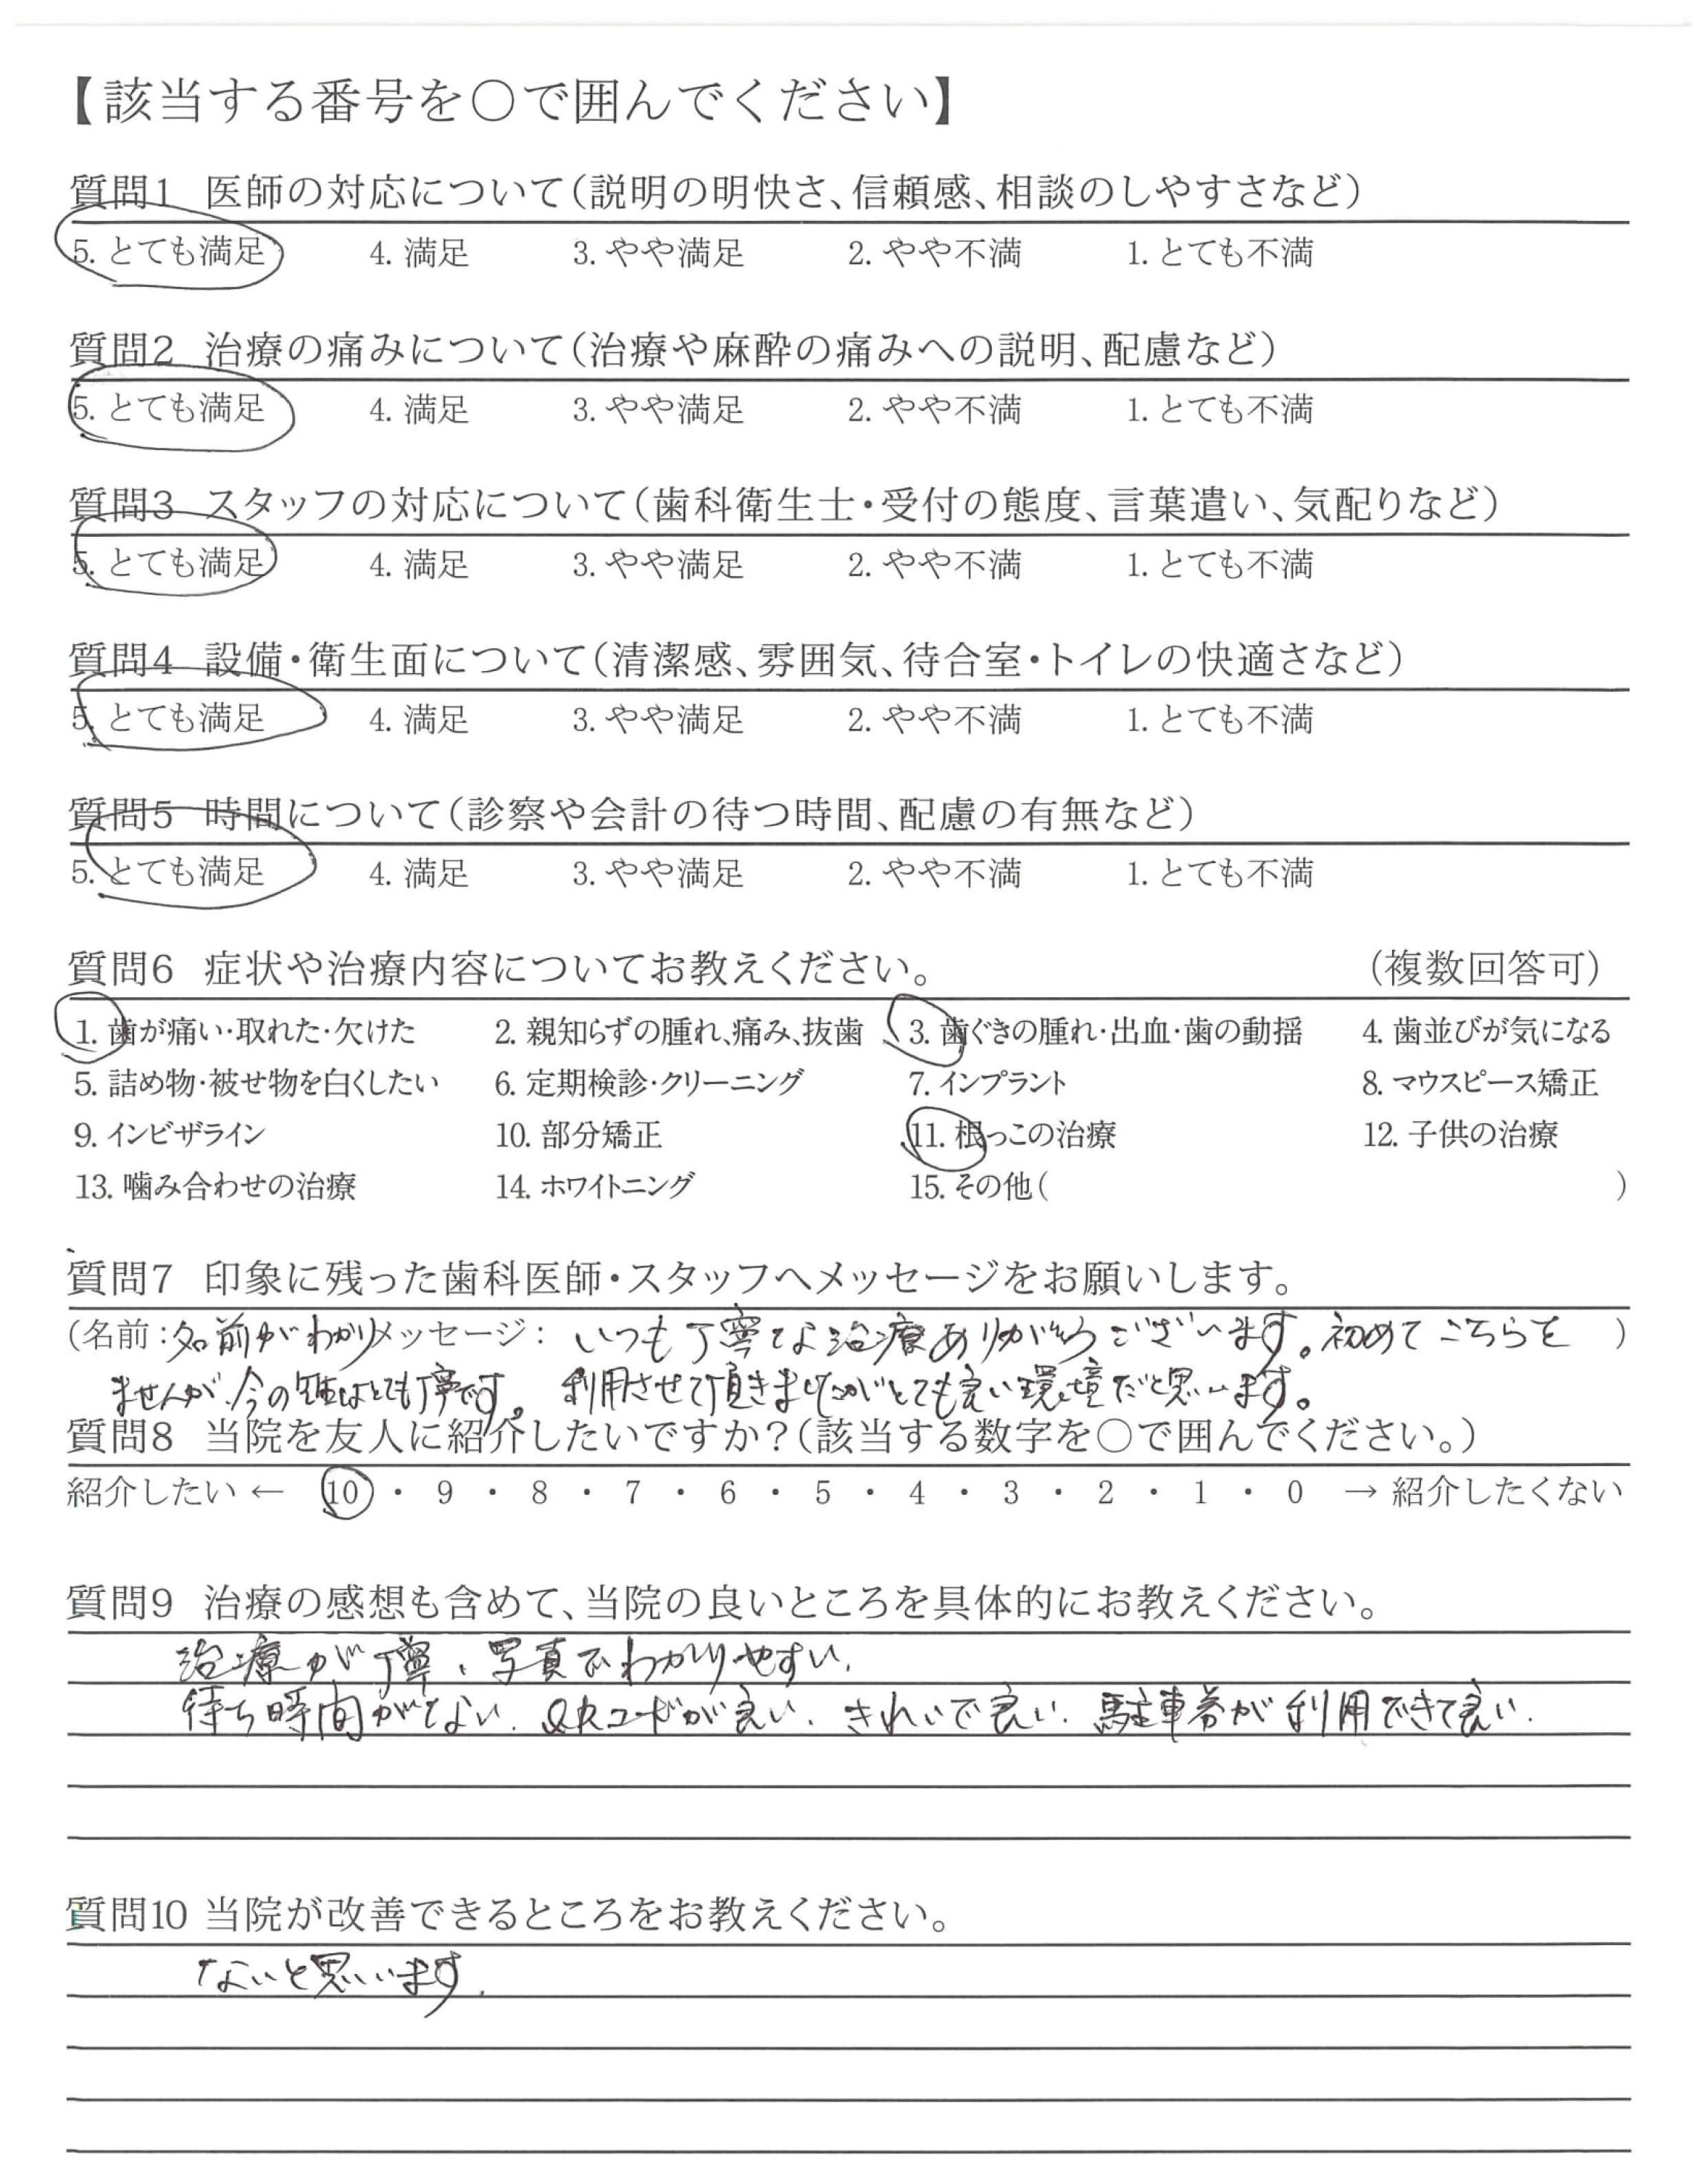 【該当する番号を○で囲んでください】
質問1 医師の対応について(説明の明快さ、信頼感、相談のしやすさなど)
5. とても満足 4. 満足 3. やや満足 2. やや不満 1. とても不満
質問2 治療の痛みについて(治療や麻酔の痛みへの説明、配慮など)
5. とても満足 4. 満足 3. やや満足 2. やや不満 1. とても不満
質問3 スタッフの対応について(歯科衛生士・受付の態度、言葉遣い、気配りなど)
5. とても満足 4. 満足 3. やや満足 2. やや不満 1. とても不満
質問4 設備・衛生面について(清潔感、雰囲気、待合室・トイレの快適さなど)
5. とても満足 4. 満足 3. やや満足 2. やや不満 1. とても不満
質問5 時間について(診察や会計の待つ時間、配慮の有無など)
5. とても満足 4. 満足 3. やや満足 2. やや不満 1. とても不満
質問6 症状や治療内容についてお教えください。 (複数回答可)
1. 歯が痛い・取れた・欠けた 2. 親知らずの腫れ、痛み、抜歯 3. 歯ぐきの腫れ・出血・歯の動揺 4. 歯並びが気になる
5. 詰め物・被せ物を白くしたい 6. 定期検診・クリーニング 7. インプラント 8. マウスピース矯正
9. インビザライン 10. 部分矯正 11. 根っこの治療 12. 子供の治療
13. 噛み合わせの治療 14. ホワイトニング 15. その他( )
質問7 印象に残った歯科医師・スタッフへメッセージをお願いします。
(名前:名前がわかりメッセージ: いつも丁寧な治療ありがとうございます。初めてこちらを )
ませんが、今の先生はとても丁寧です。 利用させて頂きましたがとても良い環境だと思います。
質問8 当院を友人に紹介したいですか?(該当する数字を○で囲んでください。)
紹介したい ← 10 ・ 9 ・ 8 ・ 7 ・ 6 ・ 5 ・ 4 ・ 3 ・ 2 ・ 1 ・ 0 → 紹介したくない
質問9 治療の感想も含めて、当院の良いところを具体的にお教えください。
治療が丁寧、写真でわかりやすい。
待ち時間がない。QRコードが良い、きれいで良い。駐車券が利用できて良い。
質問10 当院が改善できるところをお教えください。
ないと思います。